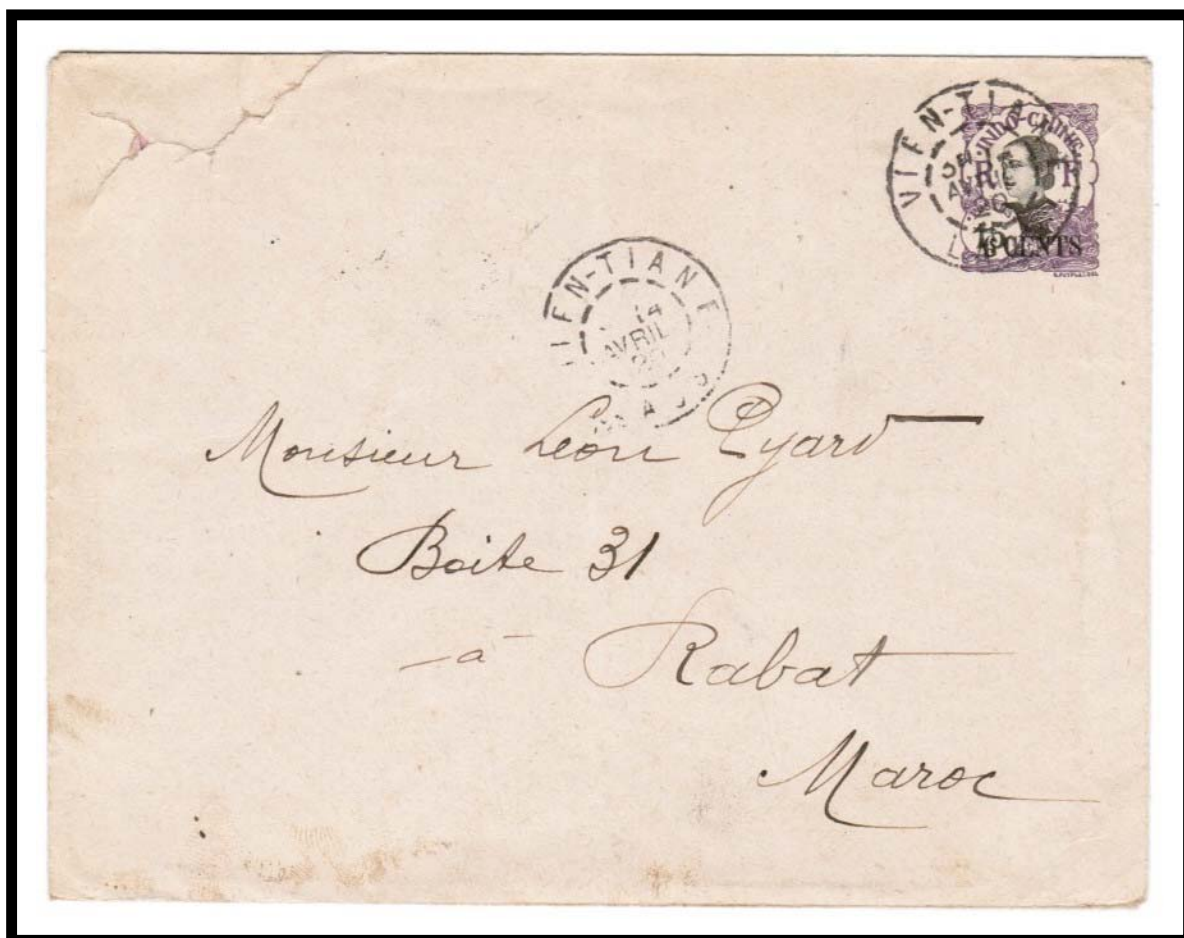 VIEN-TIANE
INDO-CHINE
R F
AVRIL
20
6 CENTS
VIEN-TIANE
14
AVRIL
20
LAOS
Monsieur Léon Pyard
Boite 31
à Rabat
Maroc